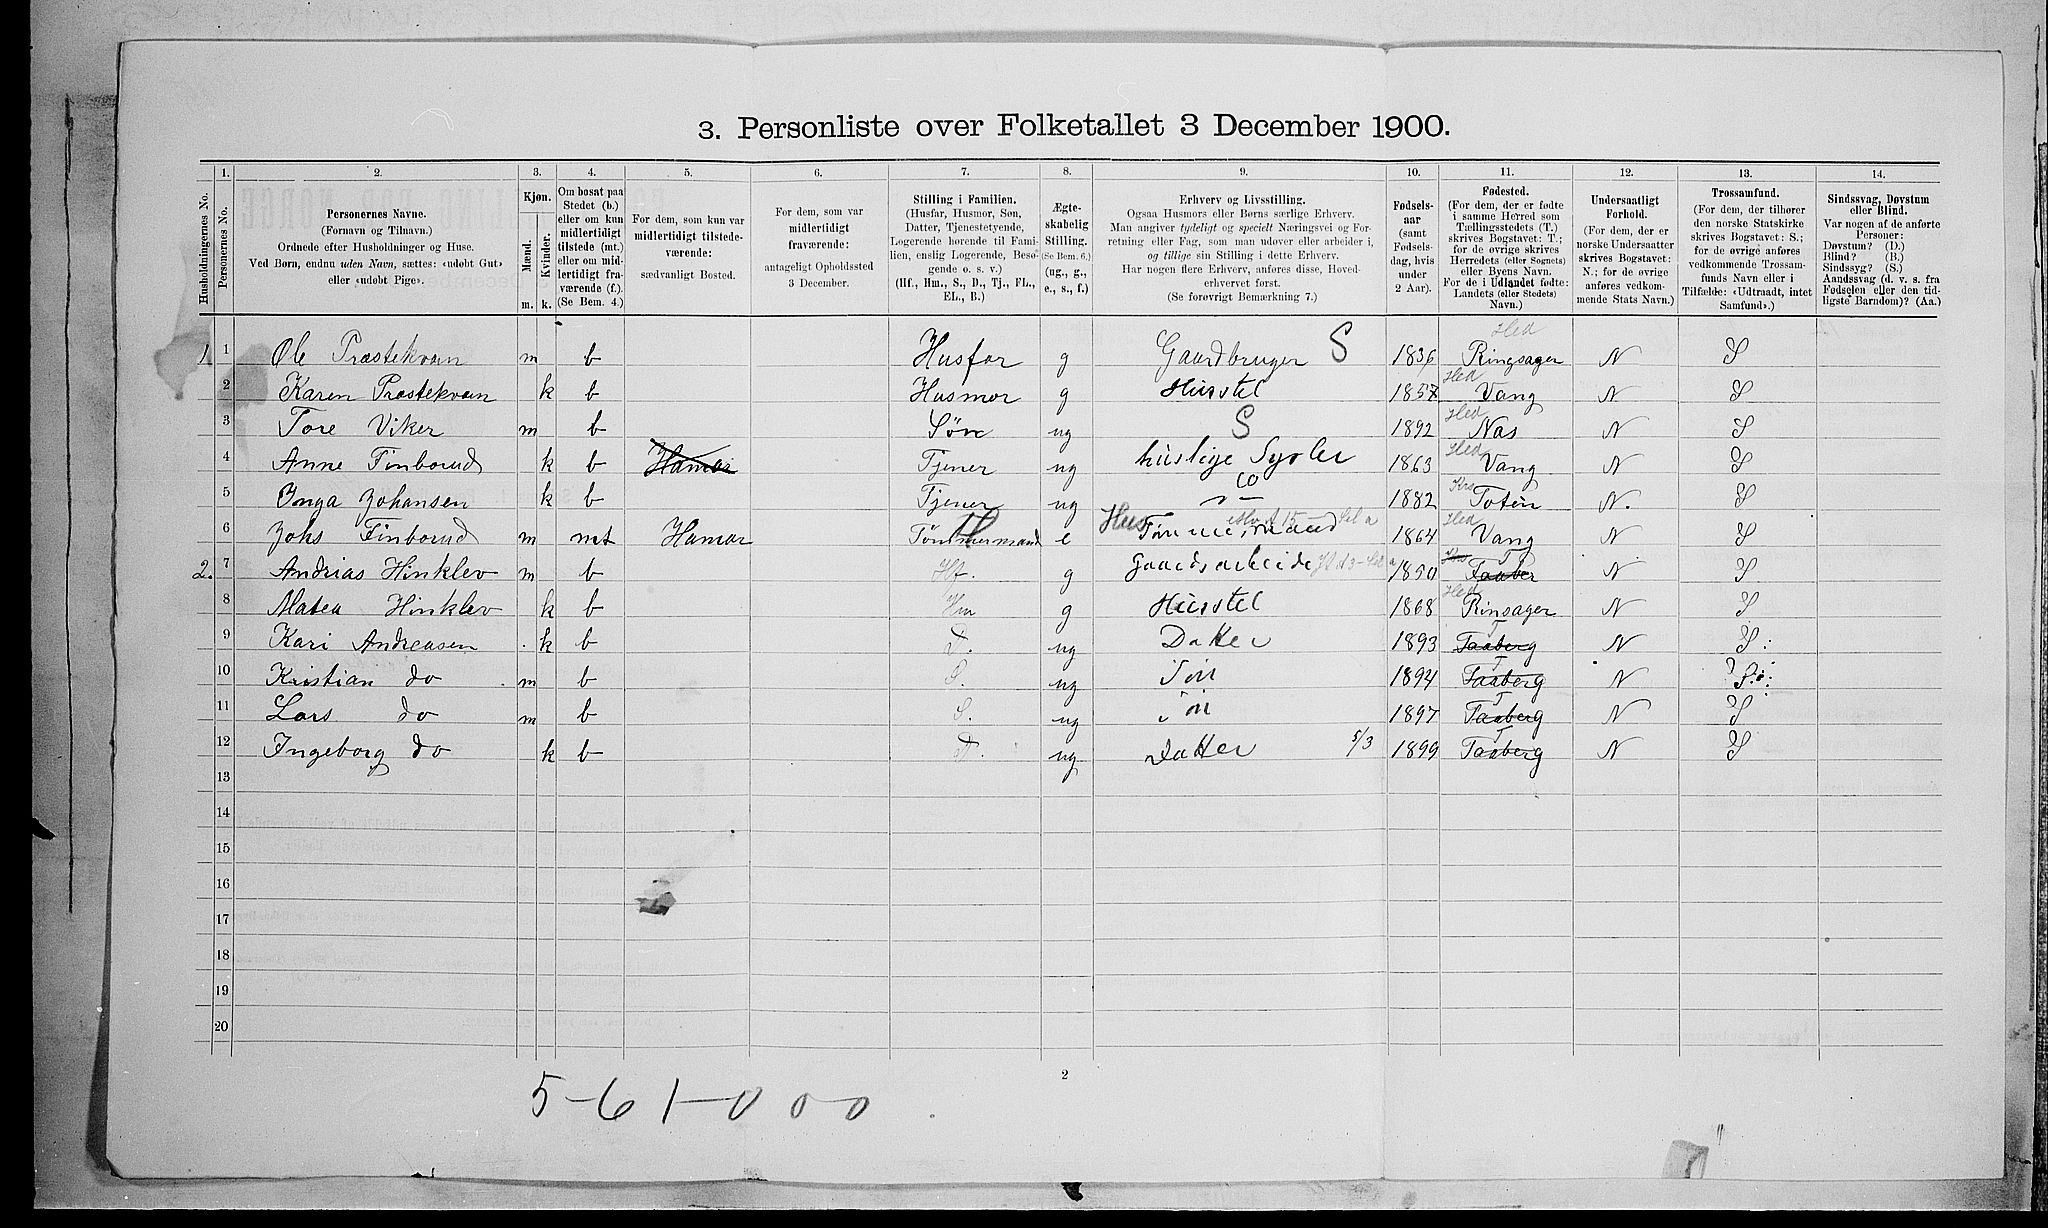 3. Personliste over Folketallet 3 December 1900.
Husholdningernes No.
1.
Personernes No.
2.
Personernes Navne.
(Fornavn og Tilnavn.)
Ordnede efter Husholdninger og Huse.
Ved Børn, endnu uden Navn, sættes: «udøbt Gut»
eller «udøbt Pige».
3.
Kjøn.
Mænd.
Kvinder.
m. k.
4.
Om bosat paa
Stedet (b.)
eller om kun
midlertidigt
tilstede (mt.)
eller om mid-
lertidigt fra-
værende (f.).
(Se Bem. 4.)
5.
For dem, som kun var
midlertidigt tilstede-
værende:
sædvanligt Bosted.
6.
For dem, som var
midlertidigt
fraværende:
antageligt Opholdssted
3 December.
7.
Stilling i Familien.
(Husfar, Husmor, Søn,
Datter, Tjenestetyende,
Logerende hørende til Fami-
lien, enslig Logerende, Besø-
gende o. s. v.)
(Hf., Hm., S., D., Tj., FL.,
EL., B.)
8.
Ægte-
skabelig
Stilling.
(Se Bem. 6.)
(ug., g.,
e., s., f.)
9.
Erhverv og Livsstilling.
Ogsaa Husmors eller Børns særlige Erhverv.
Man angiver tydeligt og specielt Næringsvei og For-
retning eller Fag, som man udøver eller arbeider i,
og tillige sin Stilling i dette Erhverv.
Har nogen flere Erhverv, anføres disse, Hoved-
erhvervet først.
(Se forøvrigt Bemærkning 7.)
10.
Fødsels-
aar
(samt
Fødsels-
dag, hvis
under
2 Aar).
11.
Fødested.
(For dem, der er fødte
i samme Herred som
Tællingsstedets (T.)
skrives Bogstavet: T.;
for de øvrige skrives
Herredets (eller Sognets)
eller Byens Navn.
For de i Udlandet fødte:
Landets (eller Stedets)
Navn.)
12.
Undersaatligt
Forhold.
(For dem, der er
norske Undersaatter
skrives Bogstavet:
N.; for de øvrige
anføres vedkom-
mende Stats Navn.)
13.
Trossamfund.
(For dem, der tilhører
den norske Statskirke
skrives Bogstavet: S.;
for de øvrige anføres
vedkommende Trossam-
funds Navn eller i
Tilfælde: «Udtraadt, intet
Samfund».)
14.
Sindssvag, Døvstum
eller Blind.
Var nogen af de anførte
Personer:
Døvstum? (D.)
Blind? (B.)
Sindssyg? (S.)
Aandssvag (d. v. s. fra
Fødselen eller den tid-
ligste Barndom)? (Aa.)
1. 1 Ole Præstekvæn m b Husfar g Gaardbruger S 1836 Hed Ringsager N S
2 Karen Præstekvæn k b Husmor g Husstel 1857 Hed Vang N S
3 Tore Viker m b Søn ug S 1892 Hed Nas N S
4 Anne Finborud k b Hamar Tjener ug huslige Sysler 1863 Hed Vang N S
5 Inga Johansen k b Tjener ug 1882 Krs Toten N. S
6 Johs Finborud m mt Hamar Tømmermand e Hus Tømmermand 1864 Hed Vang N S
2. 7 Andrias Hinklev m b Hf. g Gaardsarbeide 1850 T N S
8 Matea Hinklev k b Hm g Husstel 1868 Hed Rinsager N S
9 Kari Andreasen k b D. ug Datter 1893 Faaberg T N S
10 Kristian do m b S. ug Søn 1894 Faaberg T N S
11 Lars do m b S. ug Søn 1897 Faaberg T N S
12 Ingeborg do k b D. ug Datter 5/3 1899 Faaberg T N S
13
14
15
16
17
18
19
20
2
5-6 1-0 0-0